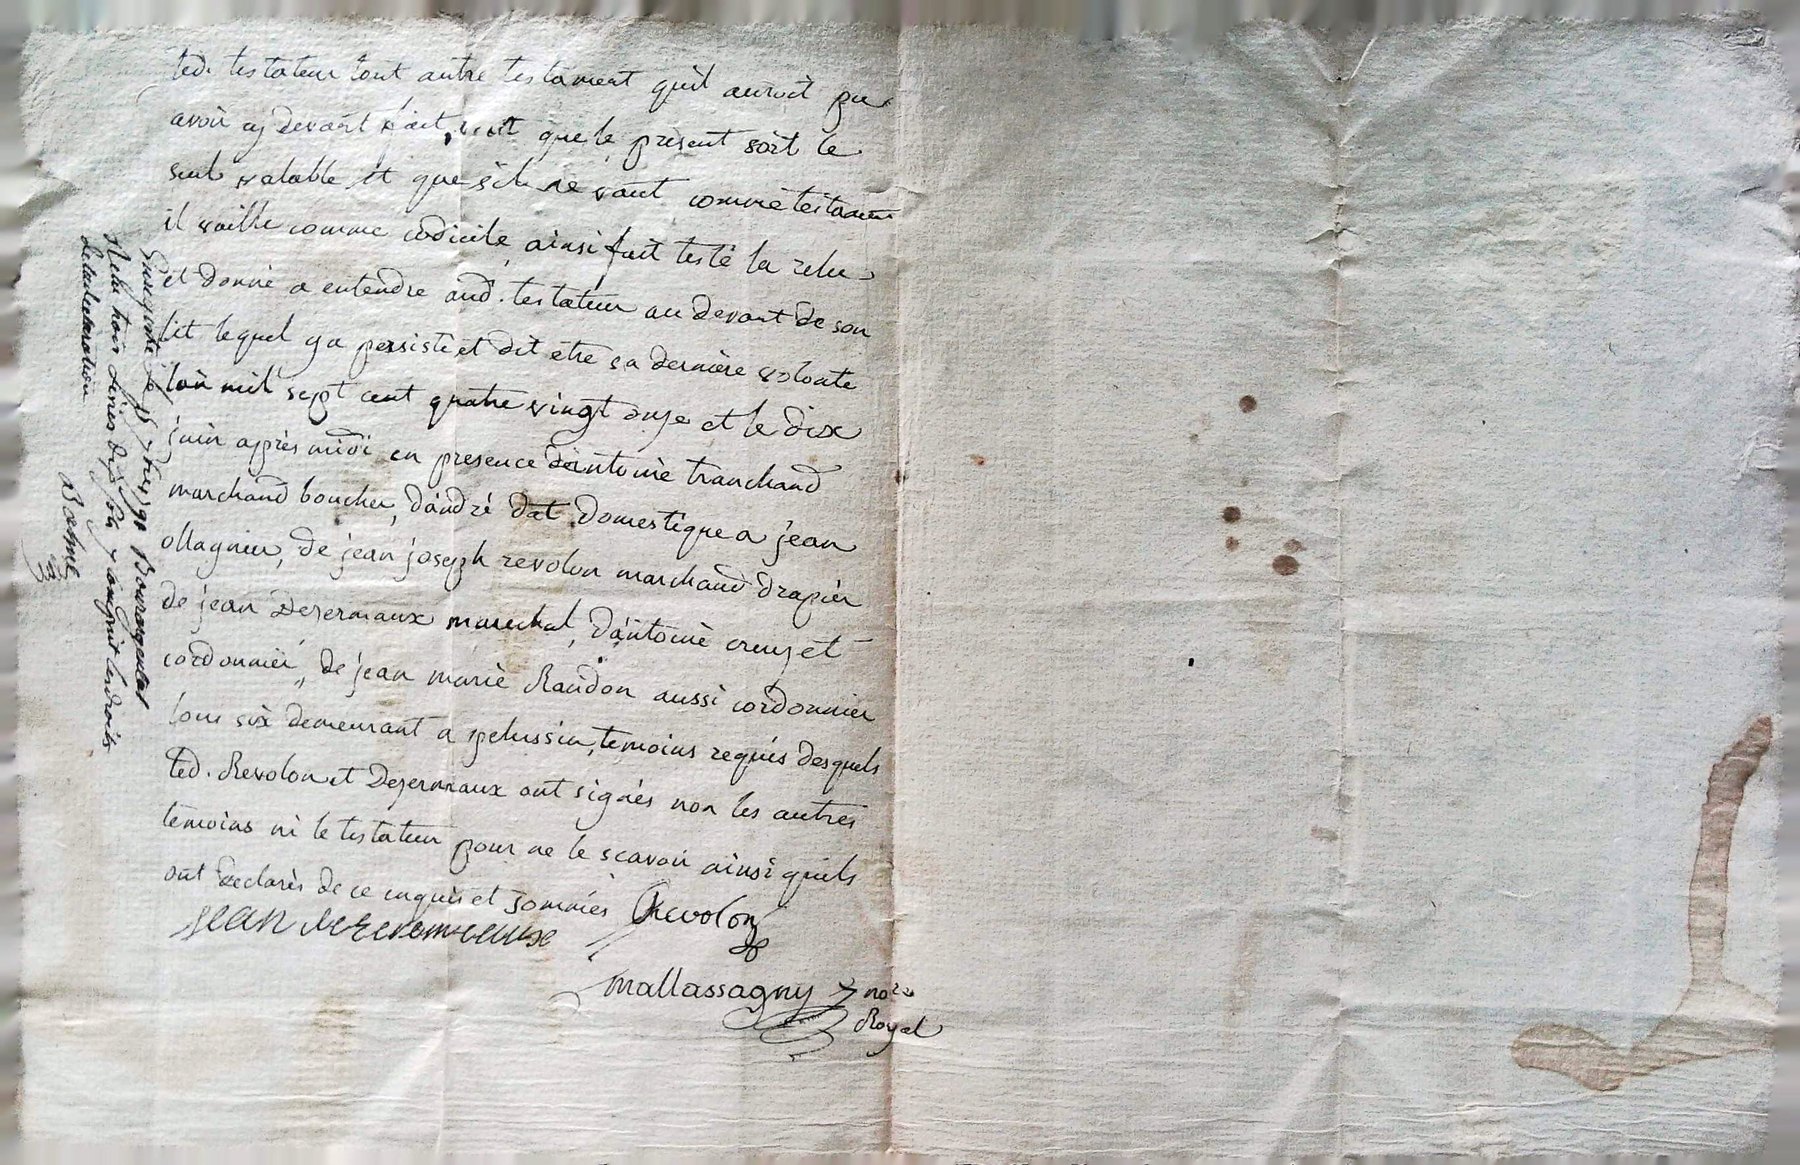 led. testateur tout autre testament quil auroit pu
avoir cy devant fait, veut que le present soit le
seul valable et que sil ne vaut comme testament
il vaille comme codicile, ainsi fait testé la relu
et donné a entendre aud. testateur au devant de son
lit lequel y a persisté et dit être sa derniere volonte
lan mil sept cent quatre vingt onze et le dix
juin après midi en presence dantoine tranchand
marchand boucher, dandré dat domestique a jean
ollagnier, de jean joseph revolon marchand drapier
de jean Dezermaux marechal, dantoine cruzet
cordonnier, de jean marie Raudon aussi cordonnier
tous six demeurant a pelussin, temoins requis desquels
led. Revolon et Dezermaux ont signés non les autres
temoins ni le testateur pour ne le scavoir ainsi quils
ont declarés de ce enquis et sommés Revolon
jean dezermeaux
mallassagny nore
Royal
Bourgargental
Reçu trois livres dix y compris les droits